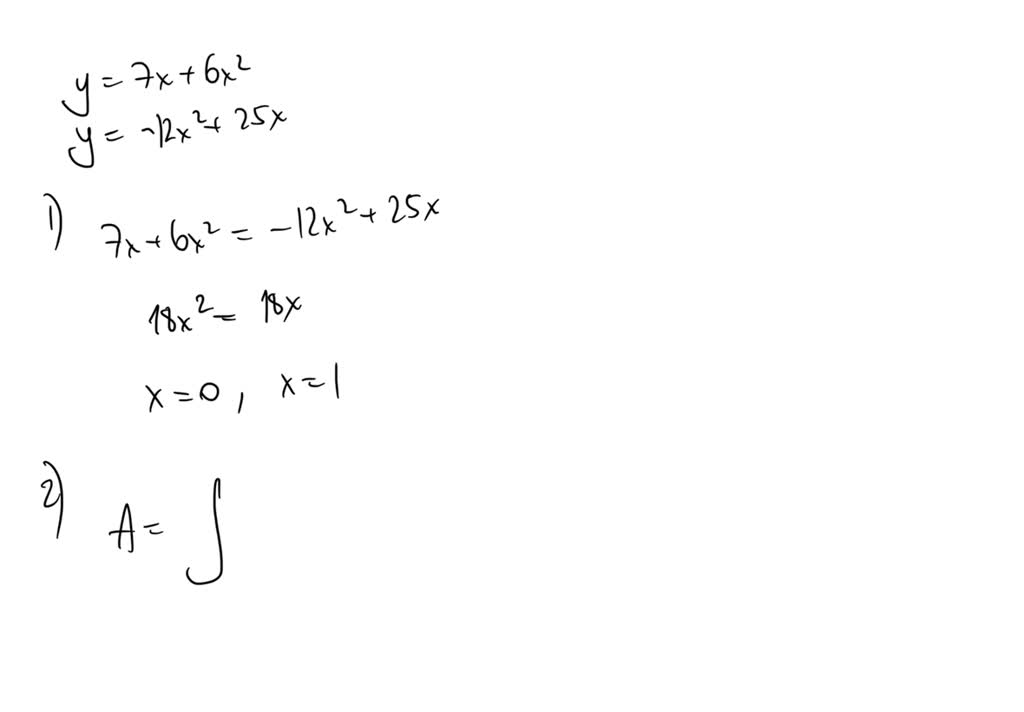 y = 7x + 6x²
y = -12x² + 25x
1) 7x + 6x² = -12x² + 25x
18x² = 18x
x = 0 , x = 1
2) A = ∫